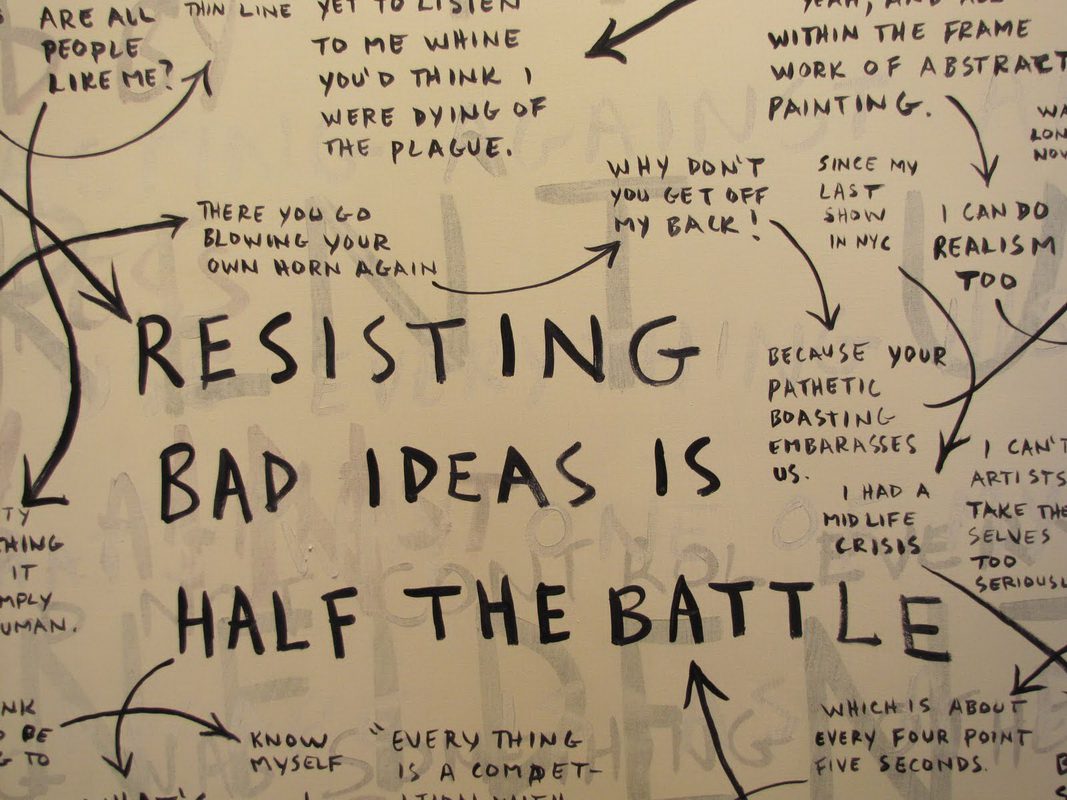 ARE ALL
PEOPLE
LIKE ME?
THIN LINE
YET TO LISTEN
TO ME WHINE
YOU'D THINK I
WERE DYING OF
THE PLAGUE.
YEAH, AND ALL
WITHIN THE FRAME
WORK OF ABSTRACT
PAINTING.
WHY DON'T
YOU GET OFF
MY BACK!
SINCE MY
LAST
SHOW
IN NYC
I CAN DO
REALISM
TOO
THERE YOU GO
BLOWING YOUR
OWN HORN AGAIN
RESISTING
BAD IDEAS IS
HALF THE BATTLE
BECAUSE YOUR
PATHETIC
BOASTING
EMBARASSES
US.
I HAD A
MIDLIFE
CRISIS
I CAN'T
ARTISTS
TAKE THE
SELVES
TOO
SERIOUSL
TY
HING
IT
MPLY
UMAN.
NK
O BE
G TO
KNOW
MYSELF
"EVERY THING
IS A COMPET-
WHICH IS ABOUT
EVERY FOUR POINT
FIVE SECONDS.
WHAT'S